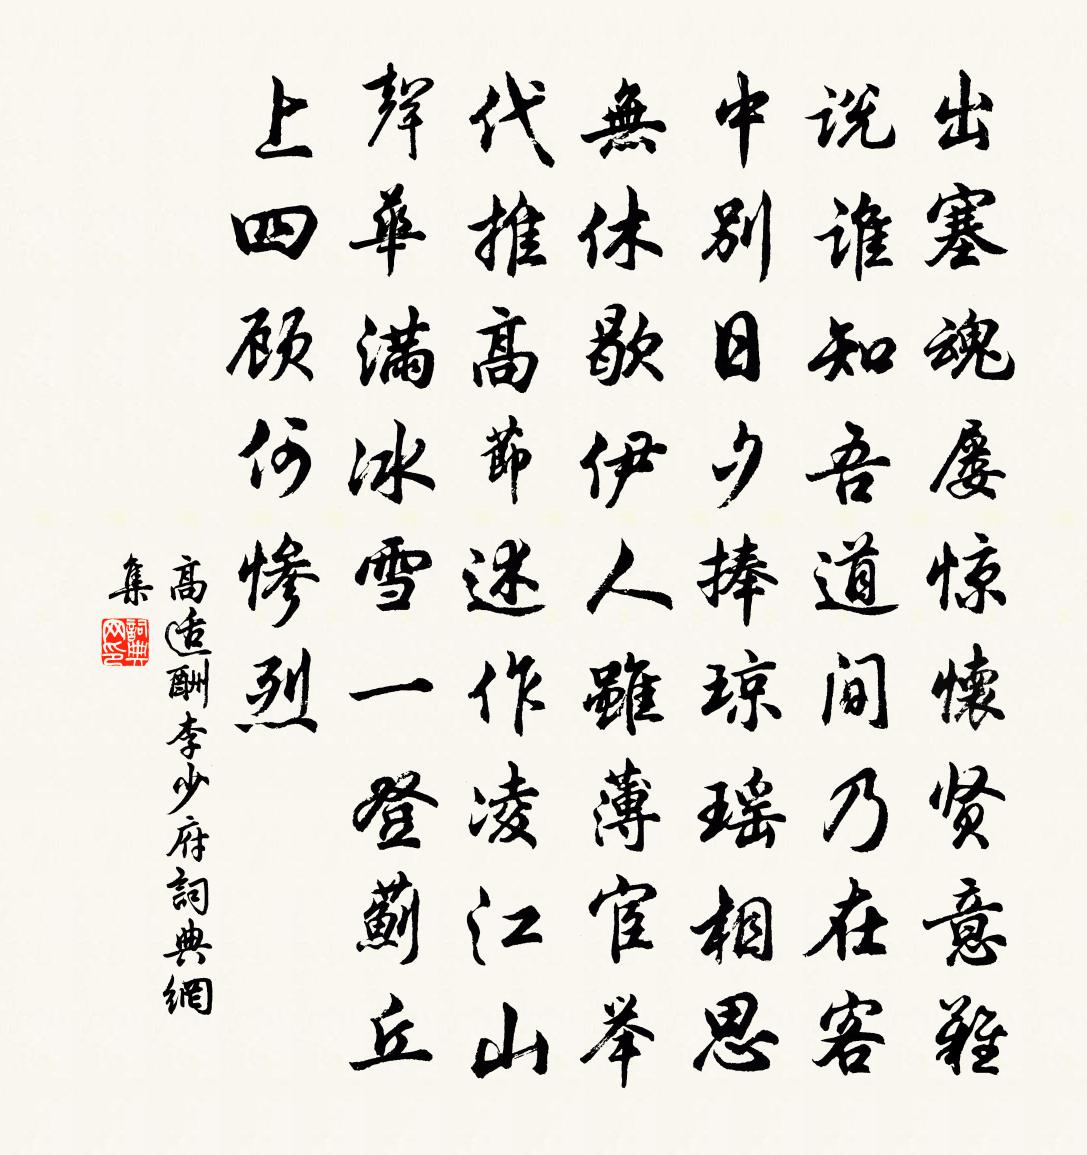 出塞魂屡惊懷贤意難
说谁知吾道间乃在客
中别日夕捧琼瑶相思
無休歇伊人雖薄宦举
代推高節述作凌江山
聲華满冰雪一登薊丘
上四顾何惨烈
高适酬李少府詞典網
集
詞典网印